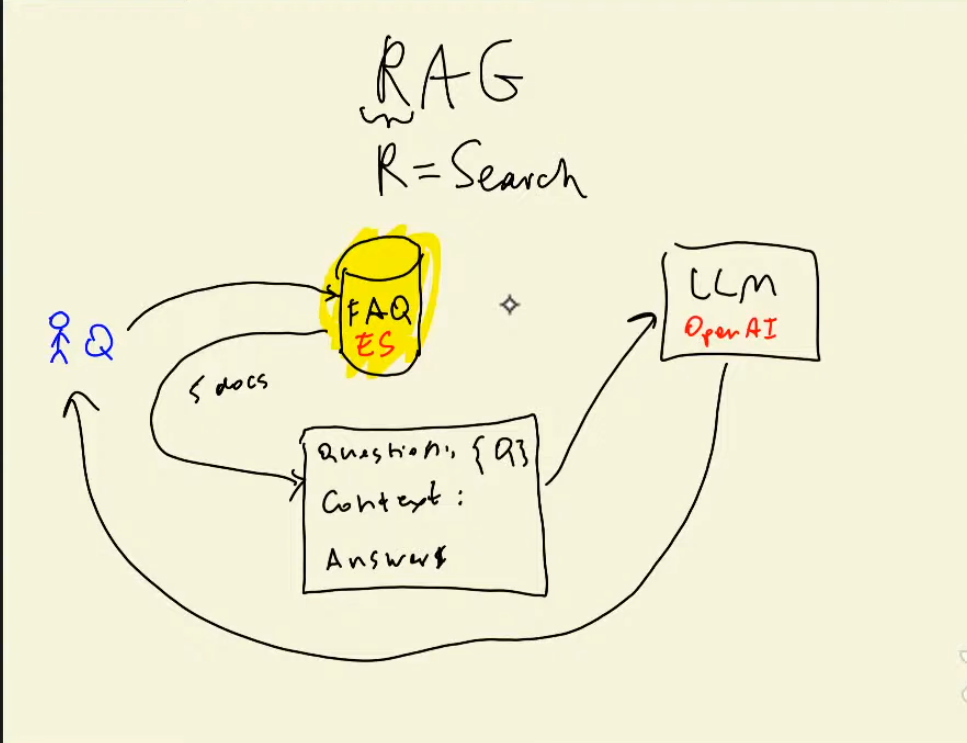 RAG
R = Search
Q
FAQ
ES
LLM
OpenAI
5 docs
Question: {Q}
Context:
Answer: